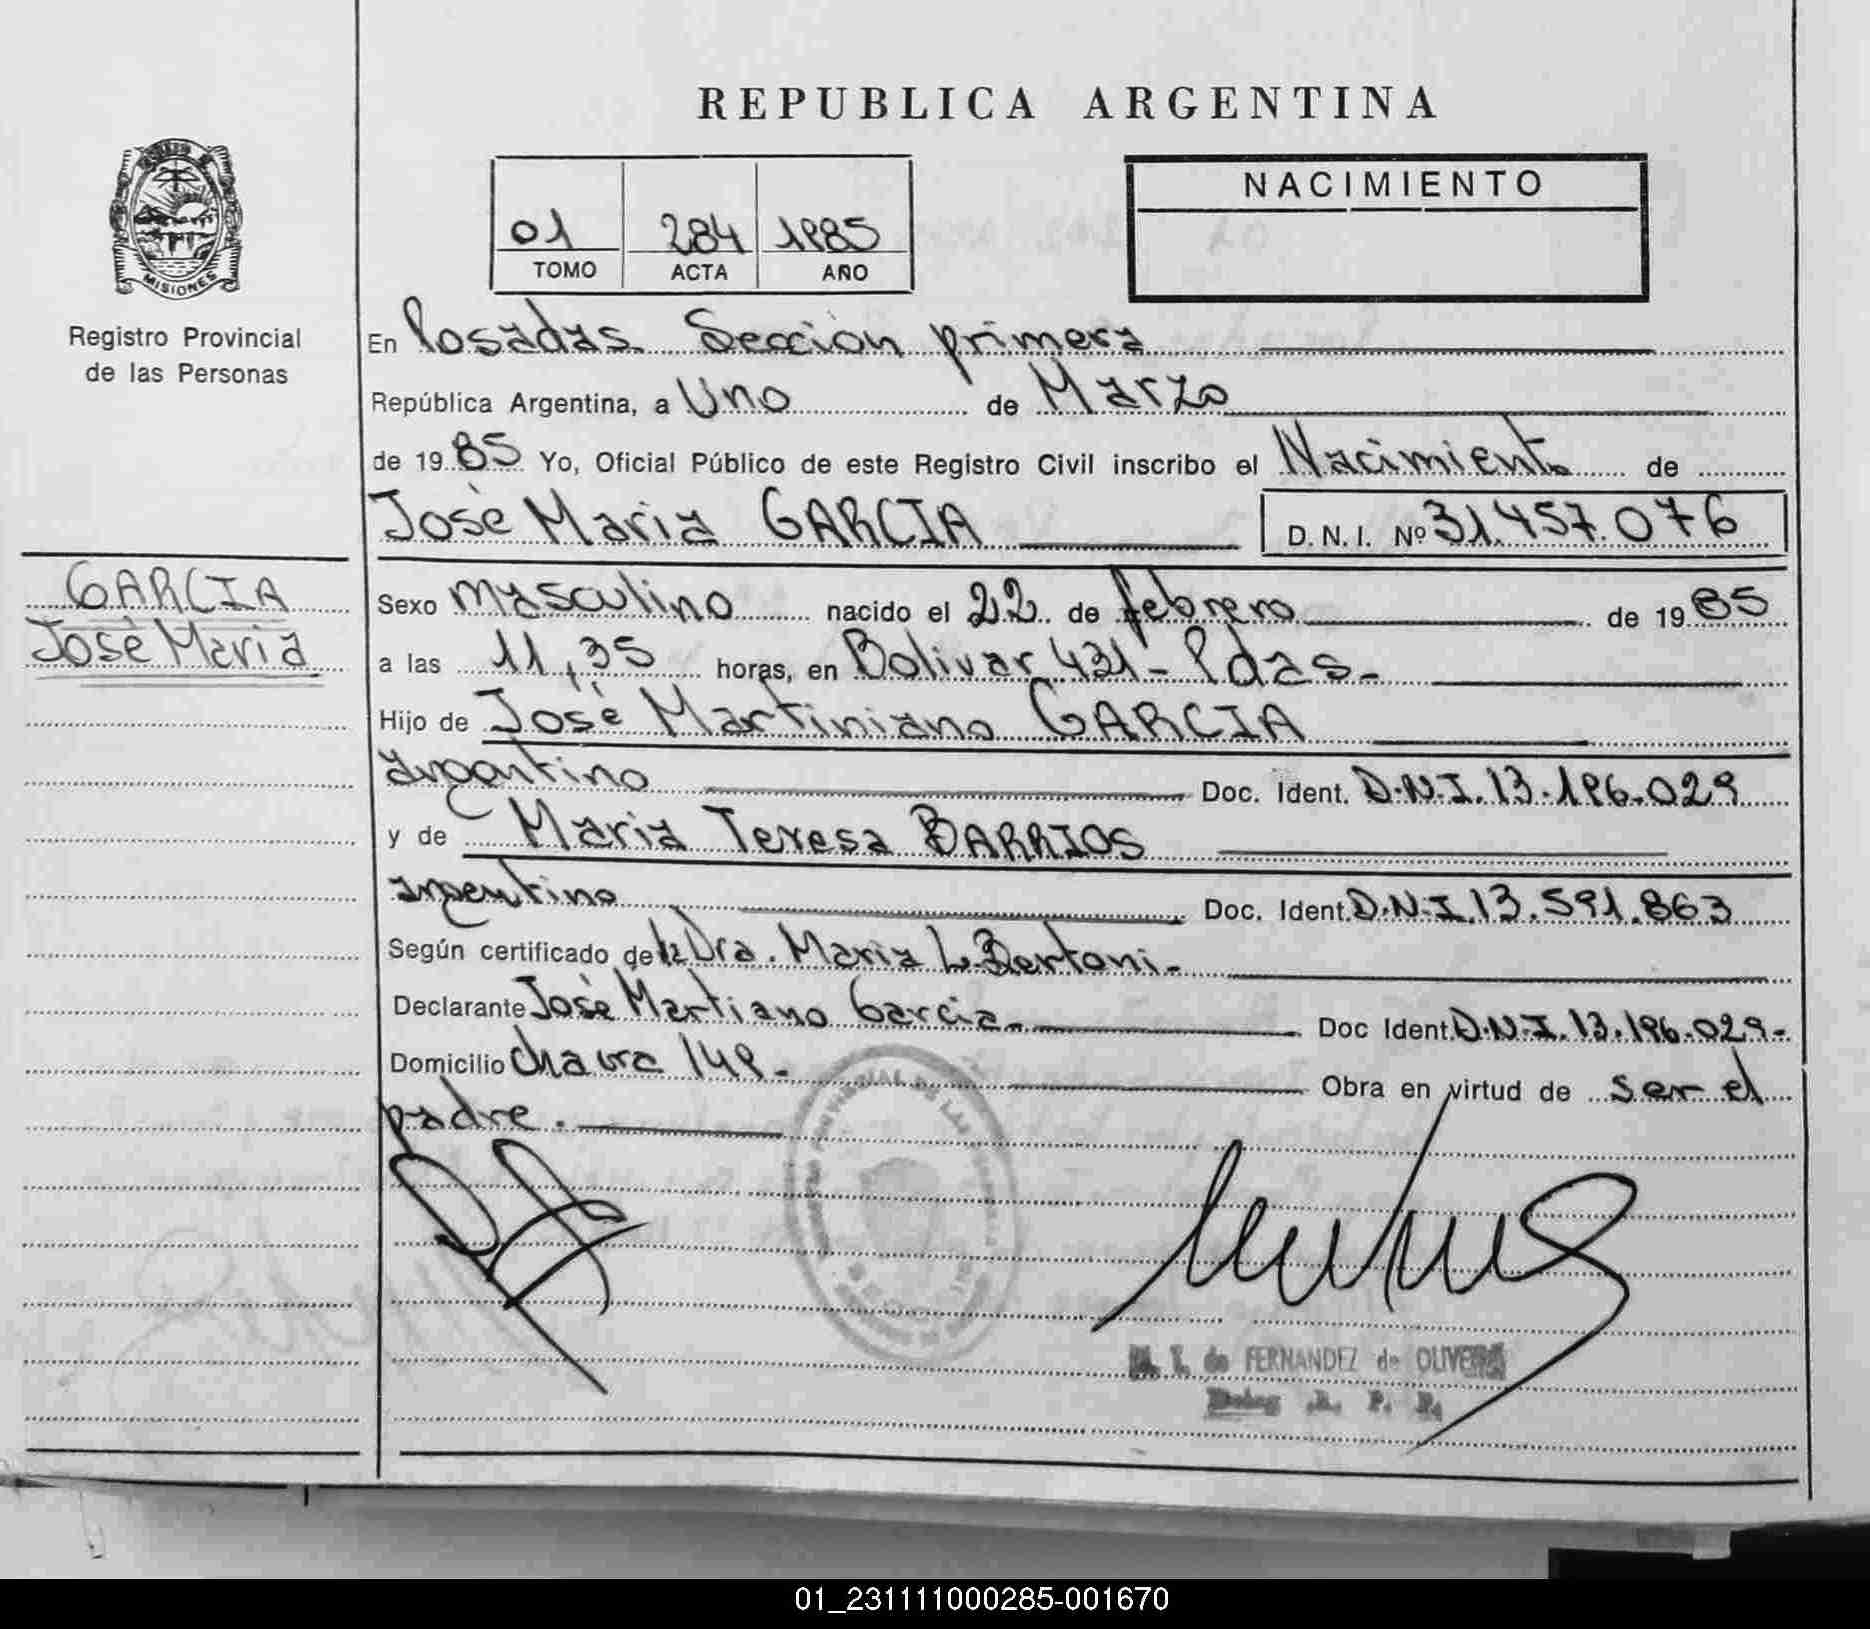 REPUBLICA ARGENTINA
MISIONES
Registro Provincial
de las Personas
NACIMIENTO
01 284 1985
TOMO ACTA AÑO
En Posadas Sección primera
República Argentina, a Uno de Marzo
de 1985 Yo, Oficial Público de este Registro Civil inscribo el Nacimiento de
José Maria GARCIA D.N.I. Nº 31.457.076
GARCIA
José Maria
Sexo masculino nacido el 22 de febrero de 1985
a las 11,35 horas, en Bolivar 431 - Pdas.-
Hijo de José Martiniano GARCIA
argentino Doc. Ident. D.N.I. 13.196.029
y de Maria Teresa BARRIOS
argentino Doc. Ident. D.N.I. 13.591.863
Según certificado de la Dra. Maria L. Bertoni.-
Declarante José Martiano Garcia.- Doc Ident. D.N.I. 13.196.029.-
Domicilio 149.- Obra en virtud de ser el
padre.
de FERNANDEZ de OLIVERA
01_231111000285-001670